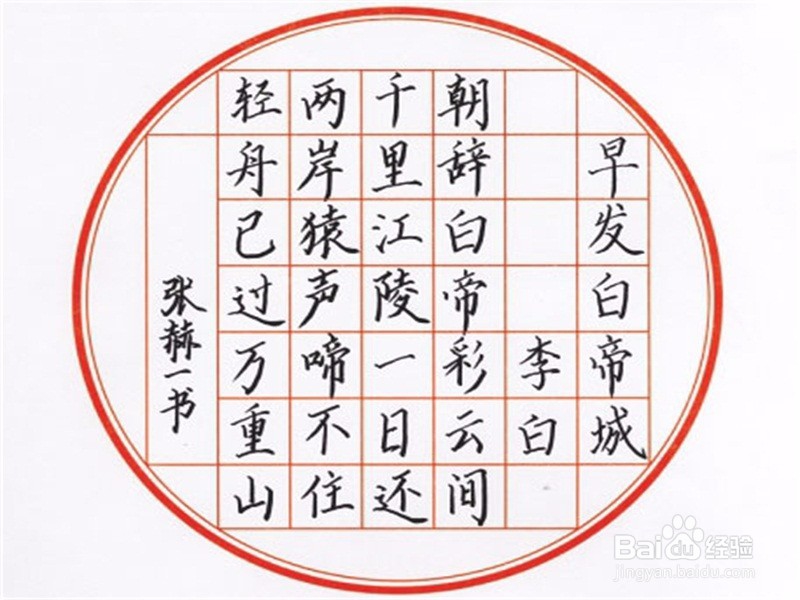 早发白帝城
李白
朝辞白帝彩云间
千里江陵一日还
两岸猿声啼不住
轻舟已过万重山
张赫一书
Baidu 经验
jingyan.baidu.com